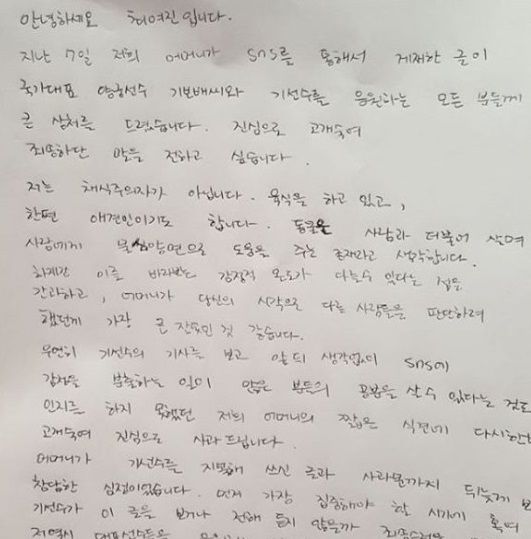 안녕하세요 최여진입니다.
지난 7일 저희 어머니가 SNS를 통해서 게재한 글이
국가대표 양궁선수 기보배씨와 기선수를 응원하는 모든 분들께
큰 상처를 드렸습니다. 진심으로 고개숙여
죄송하단 말을 전하고 싶습니다.
저는 채식주의자가 아닙니다. 육식을 하고 있고,
한편 애견인이기도 합니다. 동물은 사람과 더불어 살며
사람에게 물심양면으로 도움을 주는 존재라고 생각합니다.
하지만 이를 바라보는 감정적 온도가 다를수 있다는 점을
간과하고, 어머니가 당신의 시각으로 다른 사람들을 판단하려
했던게 가장 큰 잘못인 것 같습니다.
우연히 기선수의 기사를 보고 앞뒤 생각없이 SNS에
감정을 분출하는 일이 많은 분들의 공분을 살 수 있다는 점도
인지를 하지 못했던 저희 어머니의 짧은 식견에 다시한번
고개숙여 진심으로 사과드립니다.
어머니가 기선수를 지목해 쓰신 글과 사과문까지 뒤늦게
참담한 심정이었습니다. 먼저 가장 집중해야 할 시기에 혹여
기선수가 이 글을 보거나 전해 듣지 않을까
저 역시 대표선수들을